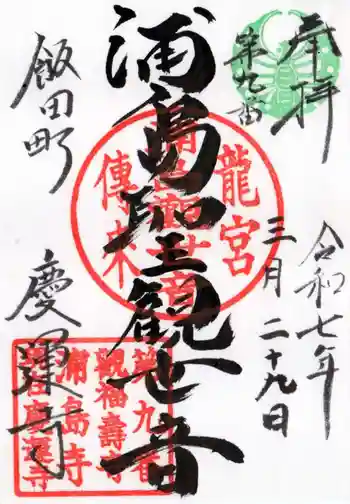 奉拝
第九番
令和七年
三月二十九日
浦島聖観世音
飯田町
慶運寺
龍宮
傳来
第九番
観福壽寺
浦島寺